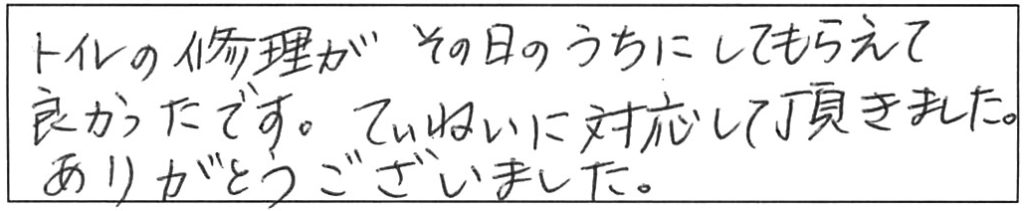 トイレの修理が その日のうちにしてもらえて
良かったです。ていねいに対応して頂きました。
ありがとうございました。